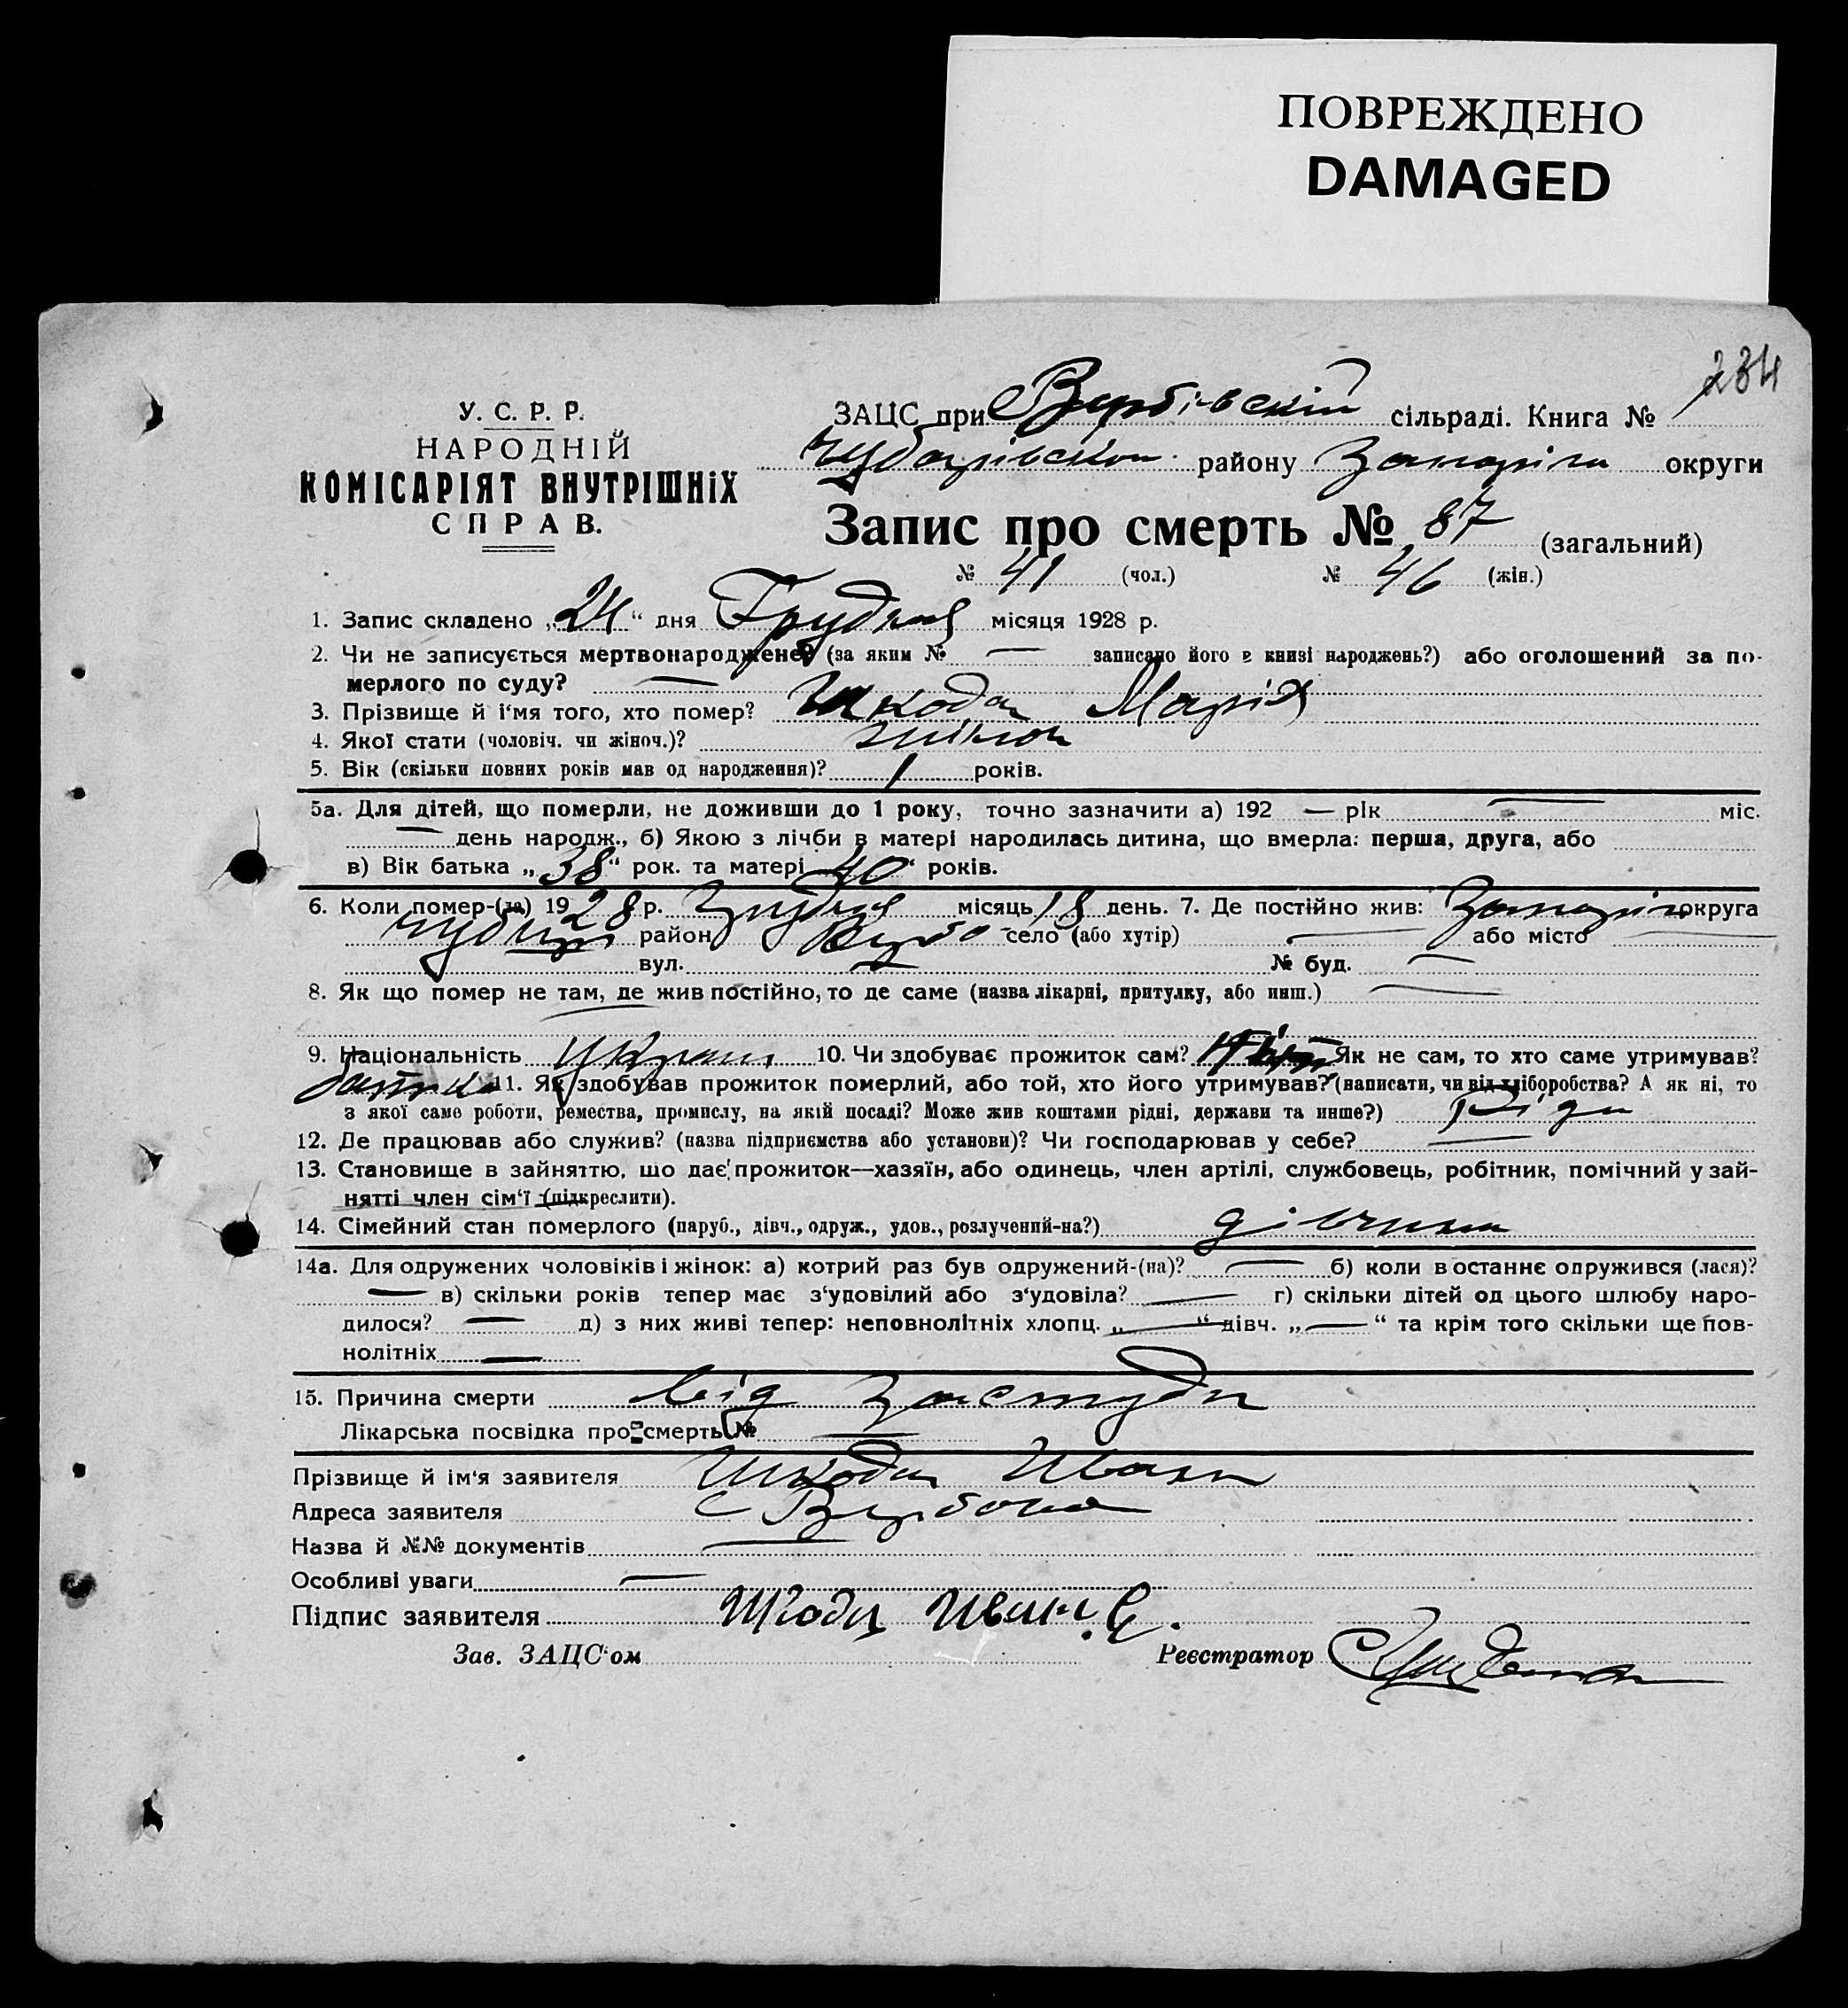 ПОВРЕЖДЕНО
DAMAGED
234
У. С. Р. Р.
НАРОДНІЙ
КОМІСАРІЯТ ВНУТРІШНіХ
СПРАВ.
ЗАЦС при Вербівскій сільраді. Книга №
Чубарівском району Запоріж округи
Запис про смерть № 87 (загальний)
№ 41 (чол.) № 46 (жін.)
1. Запис складено „24“ дня Грудня місяця 1928 р.
2. Чи не записується мертвонароджене? (за яким № — записано його в книзі народжень?) або оголошений за по-
мерлого по суду? —
3. Прізвище й і‘мя того, хто помер? Шкода Марія
4. Якої стати (чоловіч. чи жіноч.)? жіноч
5. Вік (скільки повних років мав од народження)? 1 років.
5а. Для дітей, що померли, не доживши до 1 року, точно зазначити а) 192 — рік — міс.
— день народж., б) Якою з лічби в матері народилась дитина, що вмерла: перша, друга, або
в) Вік батька „38“ рок. та матері 40 років.
6. Коли помер-(ла) 1928 р. Грудня місяць 18 день. 7. Де постійно жив: Запоріж округа
район Верб село (або хутір) — або місто —
вул. — № буд. —
8. Як що помер не там, де жив постійно, то де саме (назва лікарні, притулку, або инш.) —
9. Національність Україн 10. Чи здобуває прожиток сам? Як не сам, то хто саме утримував?
батько 11. Як здобував прожиток померлий, або той, хто його утримував? (написати, чи від хліборобства? А як ні, то
з якої саме роботи, ремества, промислу, на якій посаді? Може жив коштами рідні, держави та инше?)
12. Де працював або служив? (назва підприємства або установи)? Чи господарював у себе? —
13. Становище в зайняттю, що дає прожиток—хазяїн, або одинець, член артілі, службовець, робітник, помічний у зай-
нятті член сім‘ї (підкреслити).
14. Сімейний стан померлого (паруб., дівч., одруж., удов., розлучений-на?) дівчина
14а. Для одружених чоловіків і жінок: а) котрий раз був одружений-(на)? — б) коли востаннє одружився (лася)?
— в) скільки років тепер має з‘удовілий або з‘удовіла? — г) скільки дітей од цього шлюбу наро-
дилося? — д) з них живі тепер: неповнолітніх хлопц. „—“ дівч. „—“ та крім того скільки ще пов-
нолітніх —
15. Причина смерти від застуди
Лікарська посвідка про смерть № —
Прізвище й ім‘я заявителя Шкода Иван
Адреса заявителя с Вербова
Назва й №№ документів —
Особливі уваги —
Підпис заявителя Шкода Иван.
Зав. ЗАЦС‘ом Реєстратор